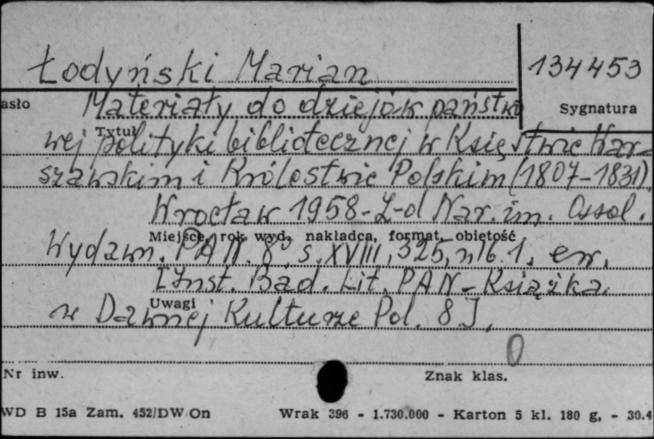 Łodyński Marian
134453
asło
Sygnatura
Materiały do dziejów państwo
Tytuł
wej polityki bibliotecznej w Księstwie War-
szawskim i Królestwie Polskim (1807-1831).
Wrocław 1958. Z-d Nar. im. Ossol.
Miejsce, rok wyd., nakładca, format, objętość
Wydawn. PAN 8°, s. XVIII, 325, nlb. 1, err.
[Inst. Bad. Lit. PAN - Książka
Uwagi
w Dawnej Kulturze Pol. 8].
Nr inw.
Znak klas.
WD B 15a Zam. 452/DW/On
Wrak 396 - 1.730.000 - Karton 5 kl. 180 g, - 30.4